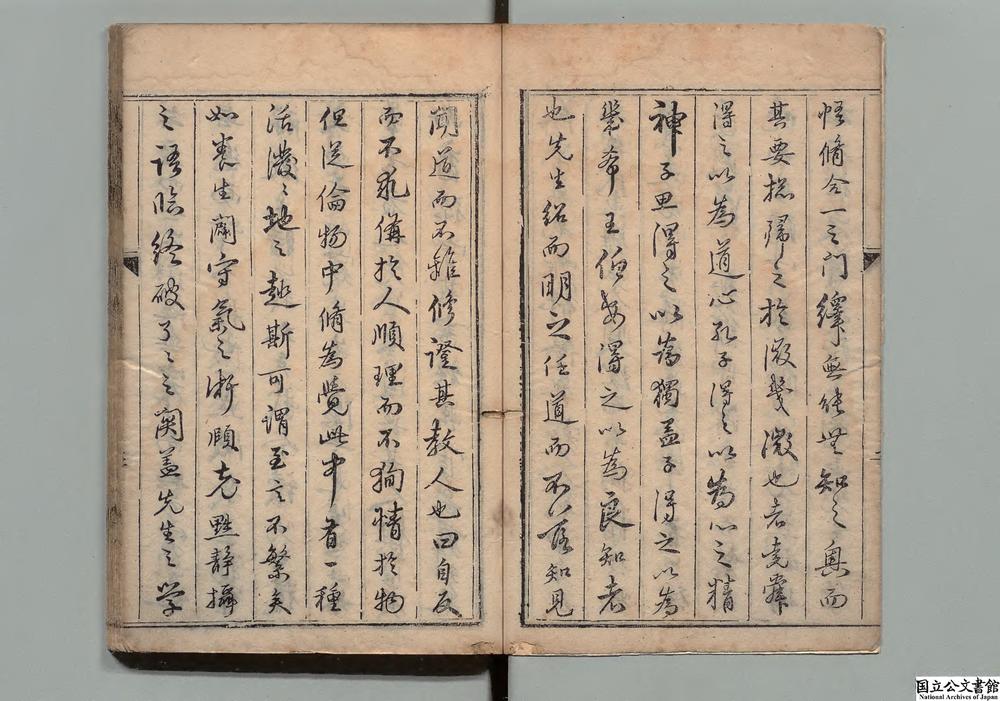 悟脩合一之門繹無能無知之奧而
其要總歸之於微幾微也者堯舜
得之以為道心孔子得之以為心之精
神子思得之以為獨孟子得之以為
幾希王伯安得之以為良知者
也先生紹而明之任道而不落知見
聞道而不離修證其教人也曰自反
而不求備於人順理而不狥情於物
但從倫物中脩為覺此中有一種
活潑潑地之趣斯可謂至言不繁矣
如養生閉守氣之術順老默靜攝
之語臨終破了了之關蓋先生之学
国立公文書館
National Archives of Japan